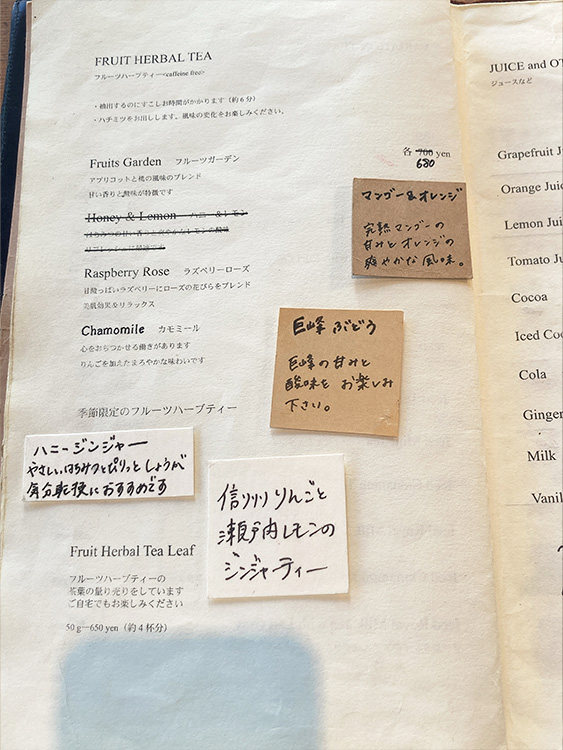 FRUIT HERBAL TEA
フルーツハーブティー<caffeine free>
・抽出するのにすこしお時間がかかります（約6分）
・ハチミツをお出しします。風味の変化をお楽しみください。
各 700 yen
680
Fruits Garden フルーツガーデン
アプリコットと桃の風味のブレンド
甘い香りと酸味が特徴です
Honey & Lemon ハニー&レモン
はちみつの甘い香りと爽やかなレモンの酸味
Raspberry Rose ラズベリーローズ
甘酸っぱいラズベリーにローズの花びらをブレンド
美肌効果&リラックス
Chamomile カモミール
心をおちつかせる働きがあります
りんごを加えたまろやかな味わいです
マンゴー&オレンジ
完熟マンゴーの
甘みとオレンジの
爽やかな風味。
巨峰 ぶどう
巨峰の甘みと
酸味を お楽しみ
下さい。
季節限定のフルーツハーブティー
ハニージンジャー
やさしいはちみつとぴりっとしょうが
気分転換におすすめです
信州りんごと
瀬戸内レモンの
ジンジャーティー
Fruit Herbal Tea Leaf
フルーツハーブティーの
茶葉の量り売りをしています
ご自宅でもお楽しみください
50g―650 yen（約4杯分）
JUICE and OT
ジュースなど
Grapefruit J
Orange Juic
Lemon Juic
Tomato Ju
Cocoa
Iced Co
Cola
Ginger
Milk
Vanil